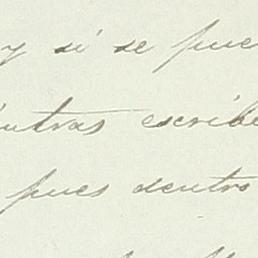 y si se pue
ientras escribe
pues dentro